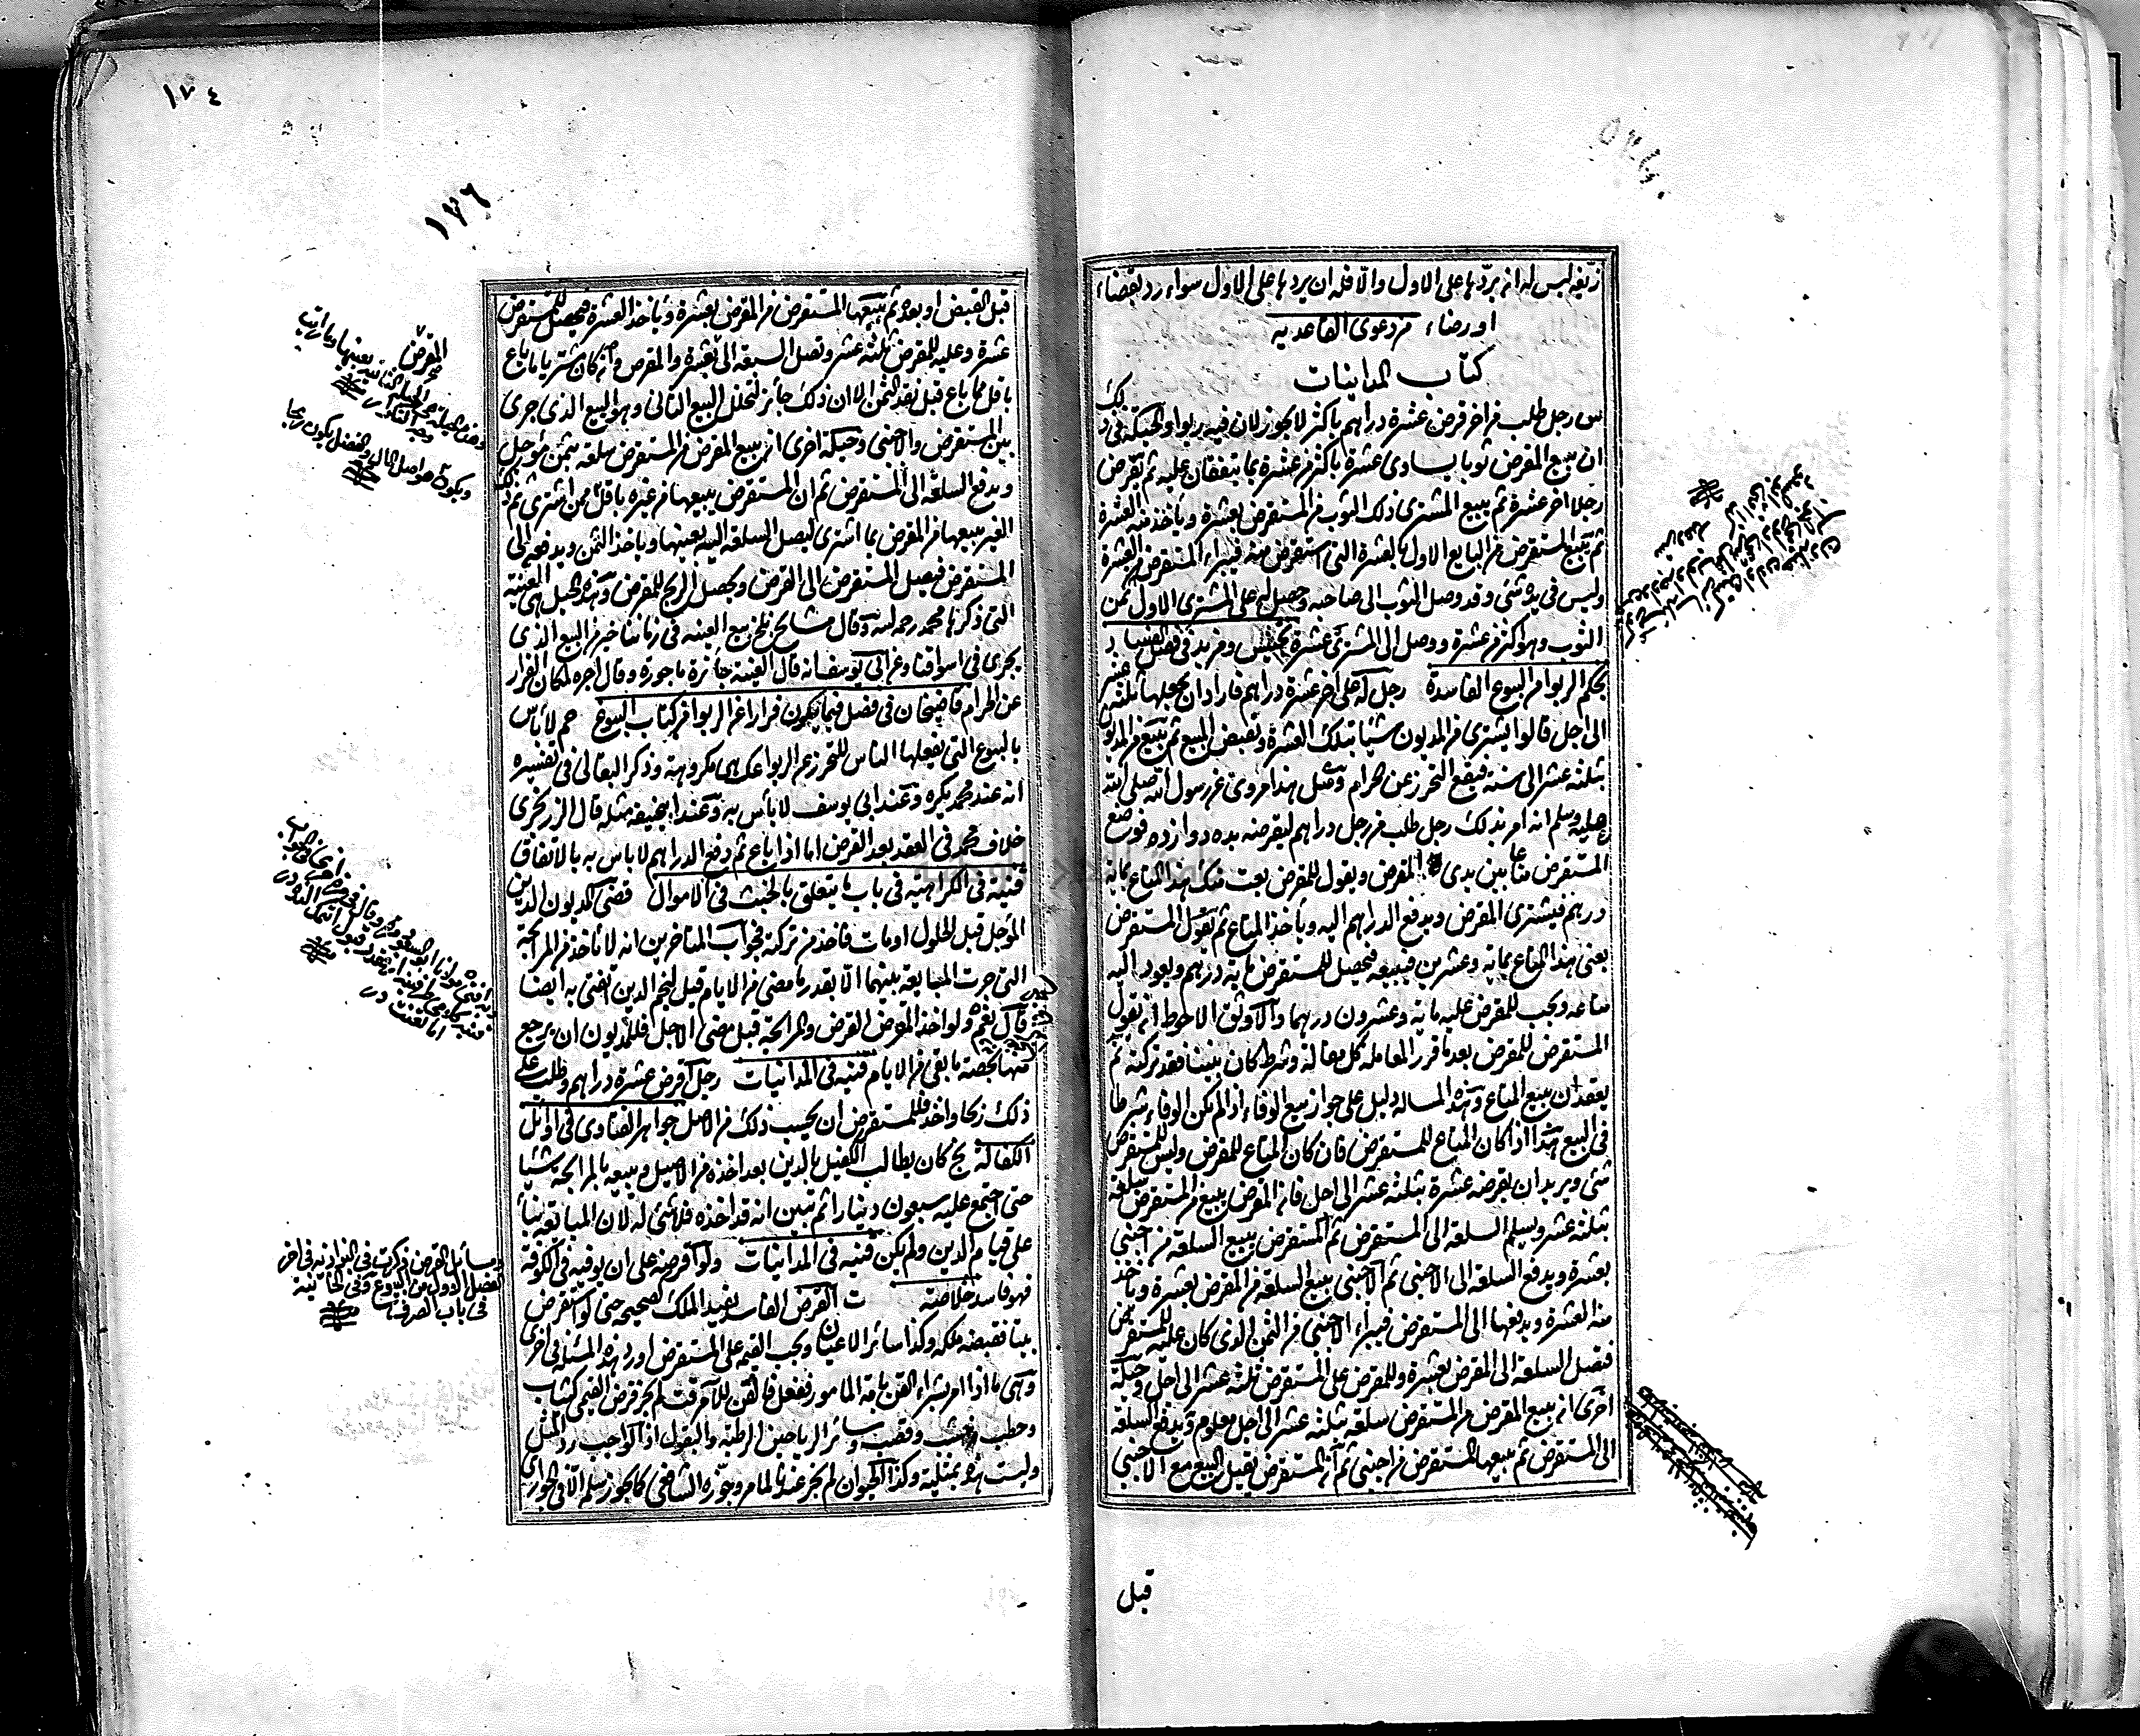 زيفه ليس له ان يردها على الاول والا فله ان يردها على الاول سواء رد بقضاء
او رضاء من دعوى القاعديه
كتاب المداينات
رجل طلب من اخر قرض عشرة دراهم باكثر لا يجوز لان فيه ربوا والحيلة في ذلك
ان يبيع المقرض ثوبا يساوى عشرة باكثر من عشرة بما يتفقان عليه ثم يقرض
رجلا اخر عشرة ثم يبيع المشترى ذلك الثوب من المستقرض بعشرة وياخذ منه العشرة
ثم يبيع المستقرض من البايع الاول بالعشرة التى استقرض منه فيبراء المستقرض من العشرة
وليس فى يده شئ وقد وصل الثوب الى صاحبه وحصل له على المشترى الاول ثمن
الثوب وهو اكثر من عشرة ووصل الى المشترى عشرة فى فصل
يحكم الربوا من البيوع الفاسدة رجل له على اخر عشرة دراهم فاراد ان يجعلها ثلثة عشر
الى اجل قالوا يشترى من المديون شيئا بتلك العشرة ويقبض المبيع ثم يبيع من المديون
بثلثة عشر الى سنة فيقع التحرز عن الحرام ومثل هذا مروى عن رسول الله صلى الله
عليه وسلم انه امر بذلك رجل طلب من رجل دراهم ليقرضه بده دوازده فوضع
المستقرض متاعا بين يدى المقرض ويقول للمقرض بعت منك هذا المتاع بماية
درهم فيشترى المقرض ويدفع الدراهم اليه وياخذ المتاع ثم يقول المستقرض
بعنى هذا المتاع بماية وعشرين فيبيعه فيحصل للمستقرض ماية درهم ويعود اليه
متاعه ويجب للمقرض عليه ماية وعشرون درهما والاوثق الاحوط ان يقول
المستقرض للمقرض بعد ما قرر المعامله كل مقالة وشرط كان بيننا فقد تركته ثم
يعقدان بيع المتاع وهذه المساله دليل على جواز بيع الوفاء اذا لم يكن الوفاء شرطا
فى البيع هذا اذا كان المتاع للمستقرض فان كان المتاع للمقرض وليس للمستقرض
شئ ويريد ان يقرضه عشرة بثلثة عشر الى اجل فان المقرض يبيع من المستقرض سلعة
بثلثة عشر ويسلم السلعة الى المستقرض ثم المستقرض يبيع السلعة من اجنبى
بعشرة ويدفع السلعة الى الاجنبى ثم الاجنبى يبيع السلعة من المقرض بعشرة وياخذ
منه العشرة ويدفعها الى المستقرض فيبراء الاجنبى من الثمن الذى كان عليه للمستقرض
فتصل السلعة الى المقرض بعشرة وللمقرض على المستقرض ثلثة عشر الى اجل وحيلة
اخرى ان يبيع المقرض من المستقرض سلعة بثلثة عشر الى اجل معلوم ويدفع السلعة
الى المستقرض ثم يبيعها المستقرض من اجنبى ثم ان المستقرض يقيل البيع مع الاجنبى
قبل
١٧٤
١٧٦
قبل القبض او بعده ثم يبيعها المستقرض من المقرض بعشرة وياخذ العشرة فيحصل للمستقرض
عشرة وعليه للمقرض ثلثة عشر وتصل السلعة الى بعشرة والمقرض وان كان مشتريا ما باع
باقل مما باع قبل نقد الثمن الا ان ذلك جائز لتخلل البيع الثانى وهو البيع الذى جرى
بين المستقرض والاجنبى وحيلة اخرى ان يبيع المقرض من المستقرض سلعة بثمن مؤجل
ويدفع السلعة الى المستقرض ثم ان المستقرض يبيعها من غيره باقل مما اشترى ثم ذلك
الغير يبيعها من المقرض بما اشترى لتصل السلعة اليه بعينها وياخذ الثمن ويدفعه الى
المستقرض فيصل المستقرض الى القرض ويحصل الربح للمقرض وهذه الحيل هى العينة
التى ذكرها محمد رحمه الله وقال مشايخ بلخ بيع العينه فى زماننا خير من البيع الذى
يجرى فى اسواقنا وعن ابى يوسف انه قال العينة جائزة ماجورة وقال اجره لمكان الفرار
عن الحرام قاضيخان فى فصل فيما يكون فرارا عن الربوا من كتاب البيوع حم لا باس
بالبيوع التى يفعلها الناس للتحرز عن الربوا عك هى مكروهة وذكر البقالى فى تفسيره
انه عند محمد يكره وعند ابى يوسف لا باس به وعند ابى حنيفه مثله قال الزرنجرى
خلاف محمد فى العقد بعد القرض اما اذا باع ثم دفع الدراهم لا باس به بالاتفاق
قنية فى الكراهية فى باب ما يتعلق بالخبث فى الاموال قضى المديون الدين
المؤجل قبل الحلول او مات فاخذ من تركته فجواب المتاخرين انه لا ياخذ من المرابحة
التى جرت المبايعة بينهما الا بقدر ما مضى من الايام قيل لنجم الدين اتفتى به ايضا
قال نعم ولو اخذ المقرض القرض والمرابحة قبل مضى الاجل فللمديون ان يرجع
منها بحصة ما بقى من الايام قنيه فى المداينات رجل اقرض عشرة دراهم وطلب على
ذلك ربحا واخذ فللمستقرض ان يحسب ذلك من الاصل جواهر الفتاوى فى اوائل
الكفالة بخ كان يطالب الكفيل بالدين بعد اخذه من الاصيل ويبيعه بالمرابحة شيئا
حتى اجتمع عليه سبعون دينارا ثم تبين انه قد اخذه فلا شئ له لان المبايعة بناء
على قيام الدين ولم يكن قنيه فى المداينات ولو اقرضه على ان يوفيه فى الكوفة
فهو فاسد خلاصة ت القرض الفاسد يفيد الملك لصحيحه حتى لو استقرض
بيتا فقبضه ملكه وكذا سائر الاعيان ويجب القيمة على المستقرض اورد هذه المسئلة فى اخرى
وهى ما اذا امر بشراء القن بامة المامور ففعل فالقن للآمر قت لم يجز قرض القيمى كثياب
وحطب وخشب وقصب وسائر الرياحين الرطبة والبقول اذ الواجب رد المثل
وليست هذه بمثلية وكذا الحيوان لم يجز عندنا لما مر وجوزه الشافعى كما يجوز سلمه الا فى الجوارى
مسائل القرض ذكرت فى البزازيه فى اخر
الفصل الاول من البيوع وفى الخانية
فى باب الصرف